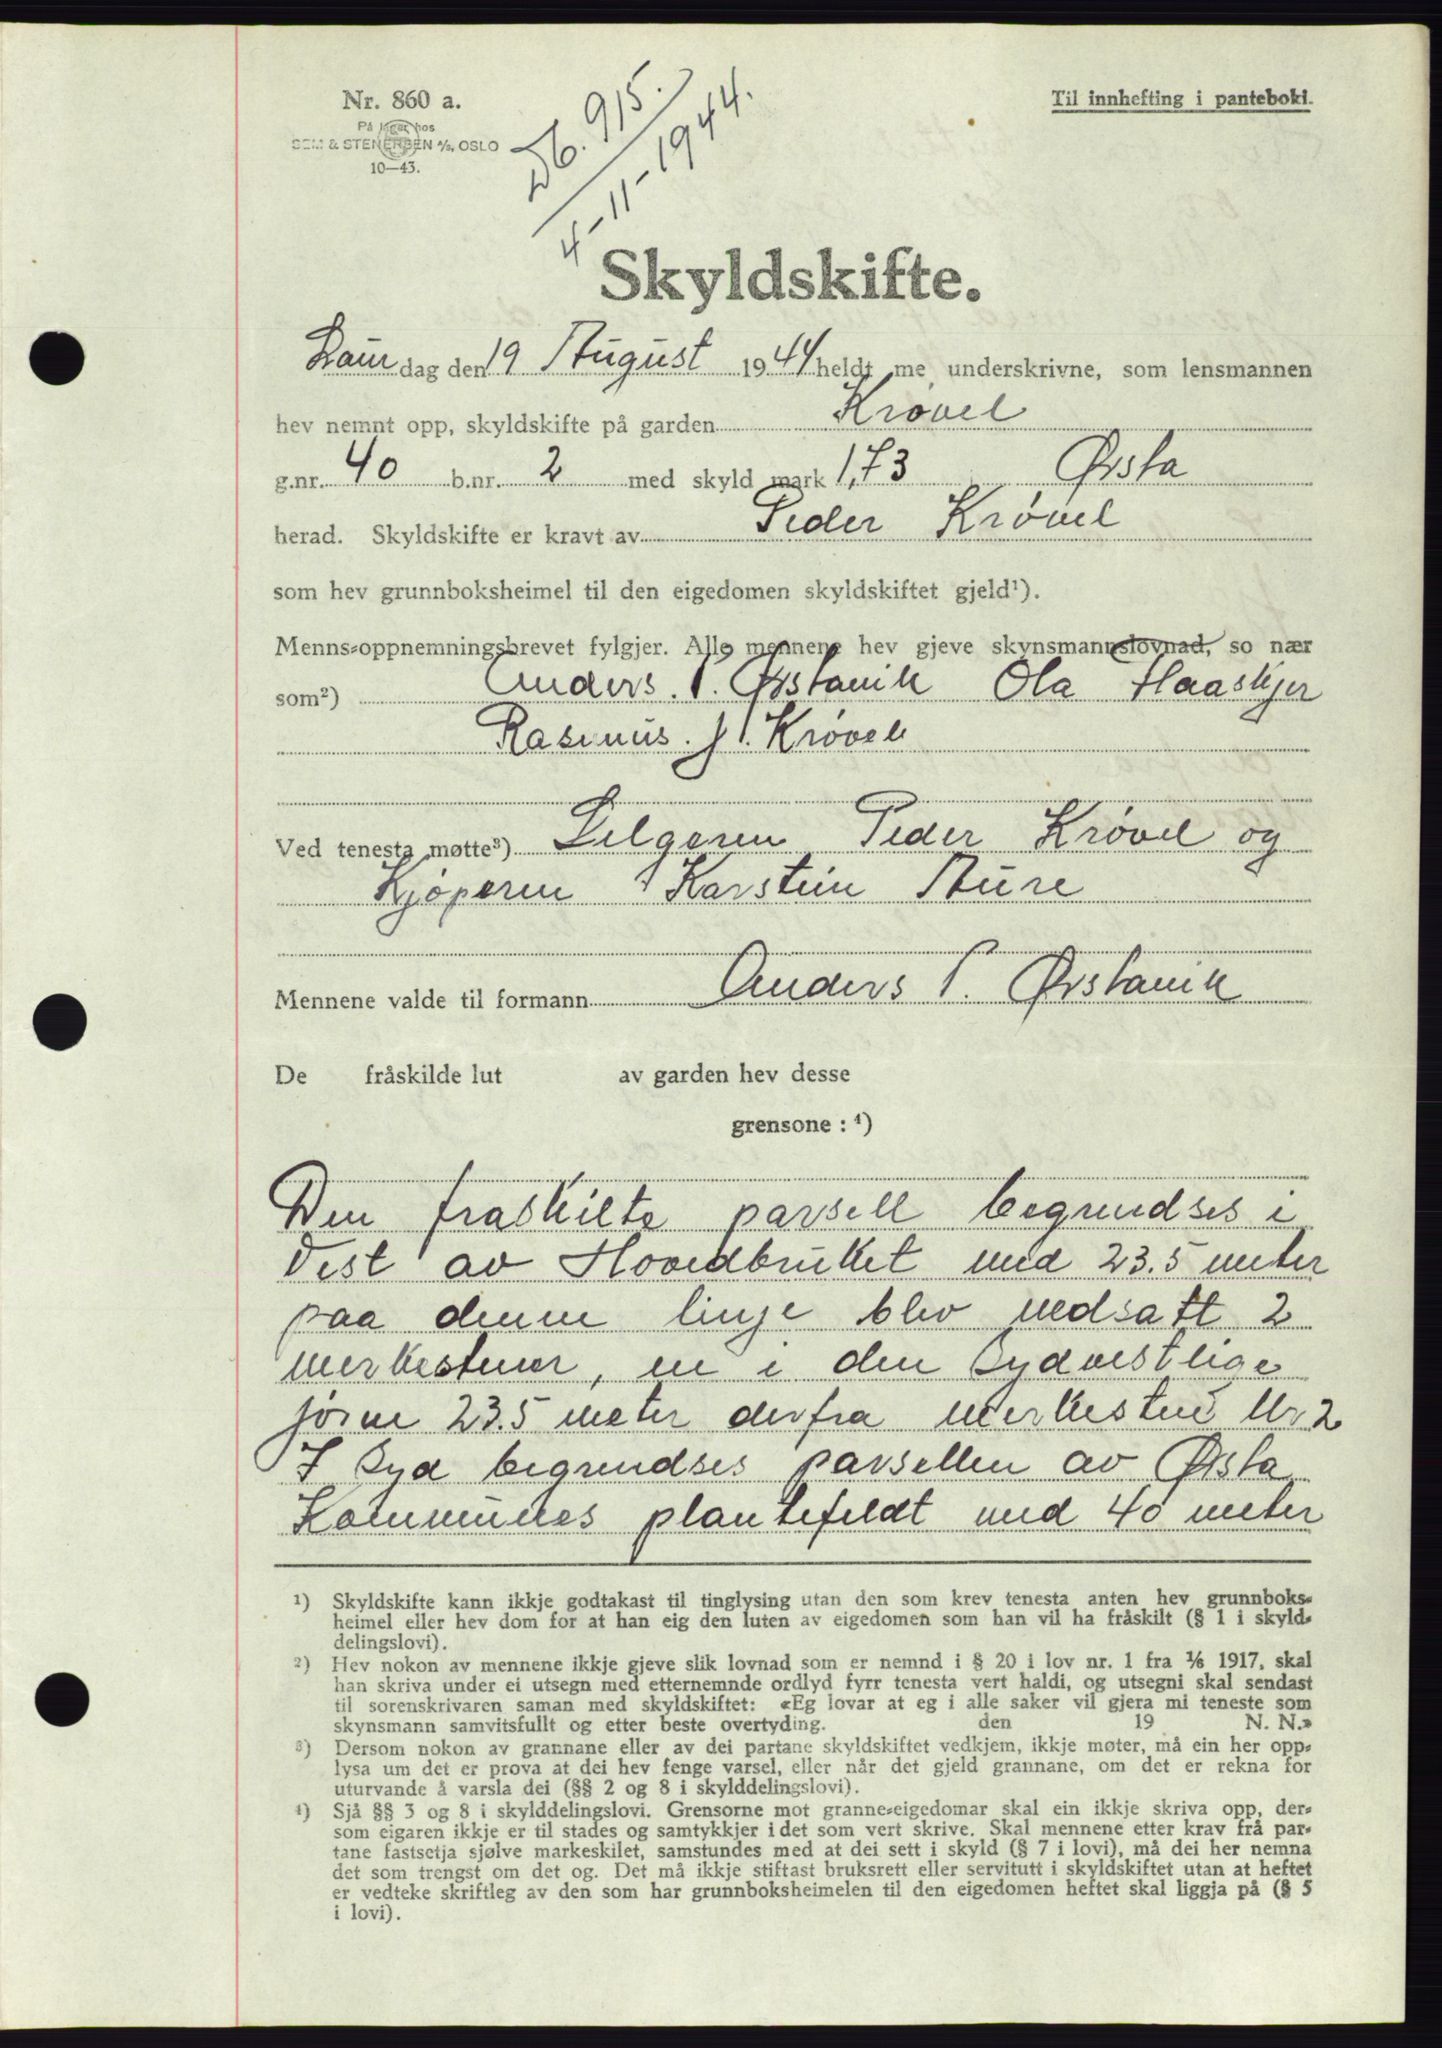 Nr. 860 a.
På lager hos
SEM & STENERSEN A/S, OSLO
10—43.
Til innhefting i panteboki.
Db. 915.
4-11-1944.
Skyldskifte.
Laur dag den 19 August 1944 heldt me underskrivne, som lensmannen
hev nemnt opp, skyldskifte på garden Krøvel
g.nr. 40 b.nr. 2 med skyld mark 1,73 Ørsta
herad. Skyldskifte er kravt av Peder Krøvel
som hev grunnboksheimel til den eigedomen skyldskiftet gjeld¹).
Menns-oppnemningsbrevet fylgjer. Alle mennene hev gjeve skynsmannslovnad, so nær
som²) Anders. P. Ørstavik Ola Haaskjer
Rasmus. J. Krøvel
Ved tenesta møtte³) Selgeren Peder Krøvel og
Kjøperen Karstein Aure
Mennene valde til formann Anders P. Ørstavik
De fråskilde lut av garden hev desse
grensone : ⁴)
Den fraskilte parsell begrendses i
Vest av Hovedbruket med 23.5 meter
paa denne linje blev nedsatt 2
merkestener, en i den Sydvestlige
jørne 23.5 meter derfra merkesten Nr 2
I Syd begrendses parsellen av Ørsta
Kommunes plantefeldt med 40 meter
¹) Skyldskifte kann ikkje godtakast til tinglysing utan den som krev tenesta anten hev grunnboks-
heimel eller hev dom for at han eig den luten av eigedomen som han vil ha fråskilt (§ 1 i skyld-
delingslovi).
²) Hev nokon av mennene ikkje gjeve slik lovnad som er nemnd i § 20 i lov nr. 1 fra ⅟₆ 1917, skal
han skriva under ei utsegn med etternemnde ordlyd fyrr tenesta vert haldi, og utsegni skal sendast
til sorenskrivaren saman med skyldskiftet: «Eg lovar at eg i alle saker vil gjera mi teneste som
skynsmann samvitsfullt og etter beste overtyding. den 19 N. N.»
³) Dersom nokon av grannane eller av dei partane skyldskiftet vedkjem, ikkje møter, må ein her opp-
lysa um det er prova at dei hev fenge varsel, eller når det gjeld grannane, om det er rekna for
uturvande å varsla dei (§§ 2 og 8 i skylddelingslovi).
⁴) Sjå §§ 3 og 8 i skylddelingslovi. Grensorne mot granne-eigedomar skal ein ikkje skriva opp, der-
som eigaren ikkje er til stades og samtykkjer i det som vert skrive. Skal mennene etter krav frå par-
tane fastsetja sjølve markeskilet, samstundes med at dei sett i skyld (§ 7 i lovi), må dei her nemna
det som trengst om det og. Det må ikkje stiftast bruksrett eller servitutt i skyldskiftet utan at heftet
er vedteke skriftleg av den som har grunnboksheimelen til den eigedomen heftet skal liggja på (§ 5
i lovi).